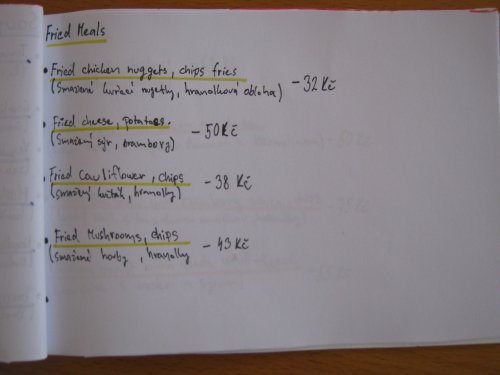 Fried Meals
• Fried chicken nuggets, chips fries
(Smažené kuřecí nugetky, hranolková obloha) - 32 Kč
• Fried cheese, potatoes. - 50 Kč
(Smažený sýr, brambory)
• Fried Cauliflower, chips - 38 Kč
(smažený květák, hranolky)
• Fried Mushrooms, chips - 43 Kč
(smažené houby, hranolky
•